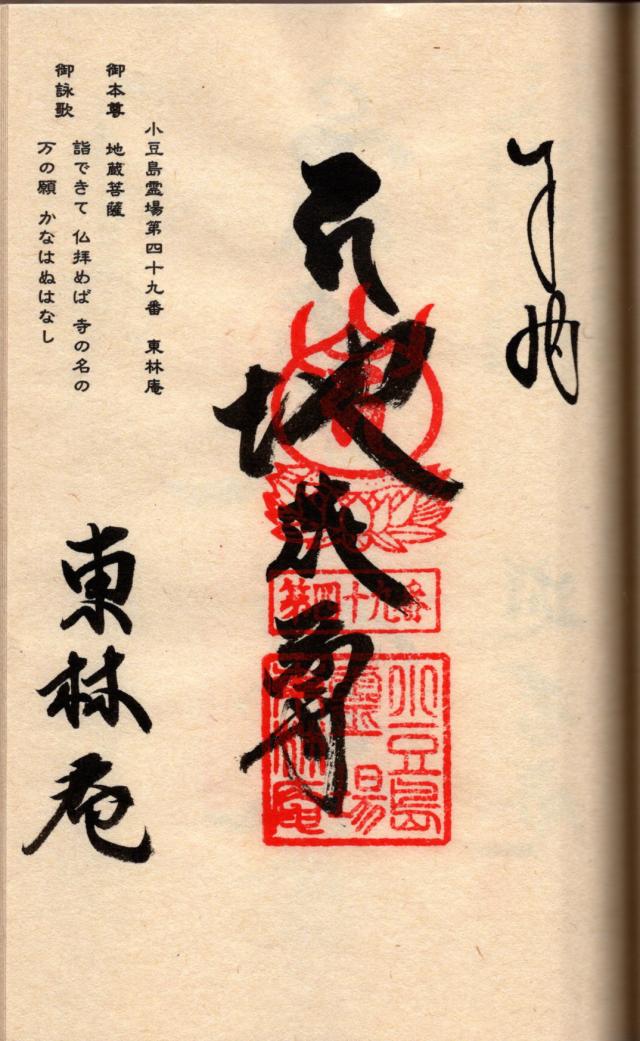 地蔵尊
第四十九番
小豆島
霊場
東林庵
小豆島霊場第四十九番 東林庵
御本尊 地蔵菩薩
御詠歌 詣できて 仏拝めば 寺の名の
万の願 かなはぬはなし
東林庵